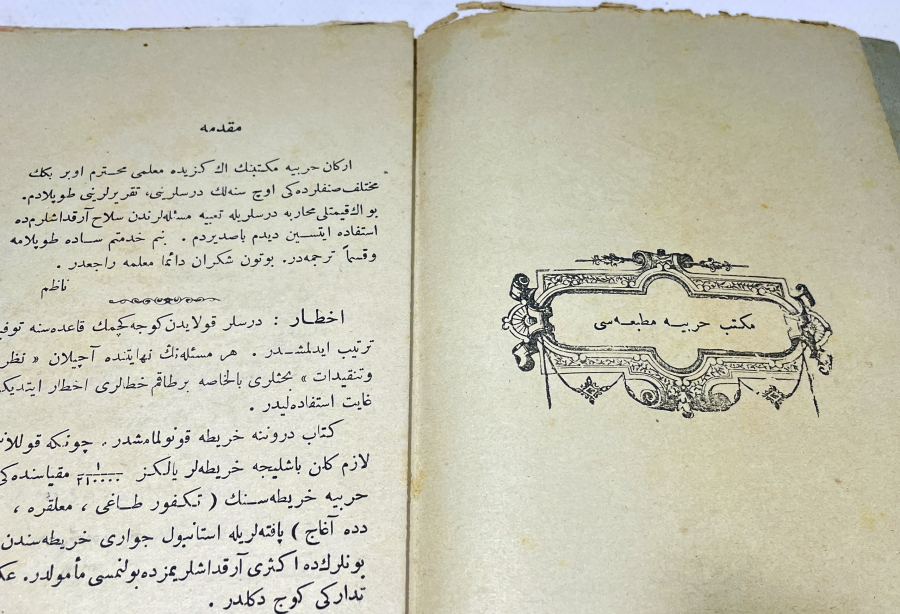 مقدمه
اركان حربیه مكتبنك اك كزیده معلمی محترم اوبر بكك
مختلف صنفلرده‌كی اوچ سنه‌لك درسلرینی، تقریرلرینی طوپلادم.
بو اك قیمتلی محاربه درسلریله تعبیه مسئله‌لرندن سلاح آرقداشلرم‌ده
استفاده ایتسین دیدم باصدیردم . بنم خدمتم ساده طوپلامه
و قسماً ترجمه‌در. بوتون شكران دائما معلمه راجعدر .
ناظم
اخطار : درسلر قولایدن كوجه كچمك قاعده‌سنه
ترتیب ایدلمشدر . هر مسئله‌نك نهایتنده آچیلان « نظر
و تنقیدات » بحثلری بالخاصه برطاقم خطالری اخطار
غایت استفاده‌لیدر .
كتاب دروننه خریطه قونولمامشدر . چونكه
لازم كلن باشلیجه خریطه‌لر یالكز ١/٢١٠٠٠٠ مقیاسنده‌كی
حربیه خریطه‌سنك ( تكفور طاغی ، معلقره ،
دده آغاج ) پافته‌لریله استانبول جواری خریطه‌سندن
بونلرك‌ده اكثری آرقداشلریمزده بولنمسی مأمولدر.
تداركی كوج دكلدر .
مكتب حربیه مطبعه‌سی